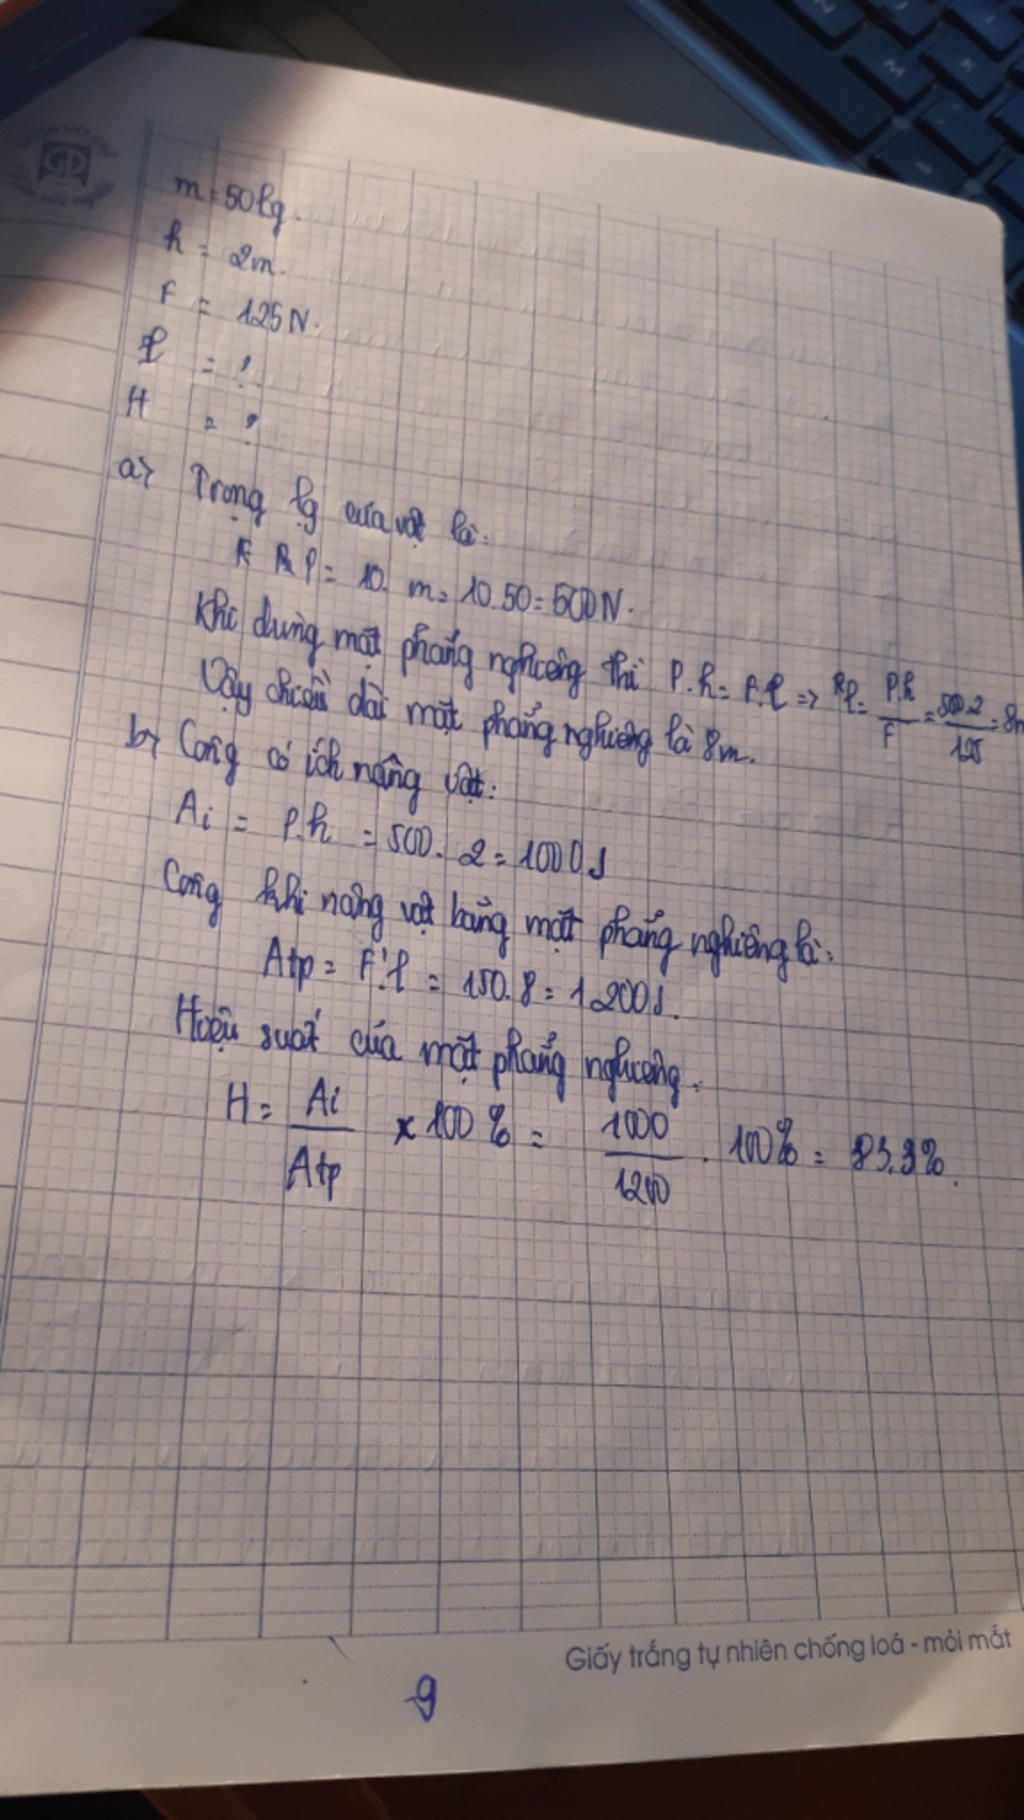 m = 50kg.
h = 2m.
F = 125N.
l = ?
H = ?
a> Trọng lg của vật là:
P = 10. m = 10.50 = 500N.
Khi dùng mặt phẳng nghiêng thì P.h = F.l => l = P.h / F = 500.2 / 125 = 8m
Vậy chiều dài mặt phẳng nghiêng là 8m.
b> Công có ích nâng vật:
Ai = P.h = 500. 2 = 1000J
Công khi nâng vật bằng mặt phẳng nghiêng là:
Atp = F'.l = 150.8 = 1200J.
Hiệu suất của mặt phẳng nghiêng:
H = Ai / Atp x 100% = 1000 / 1200 . 100% = 83.3%.
Giấy trắng tự nhiên chống loá - mỏi mắt
9